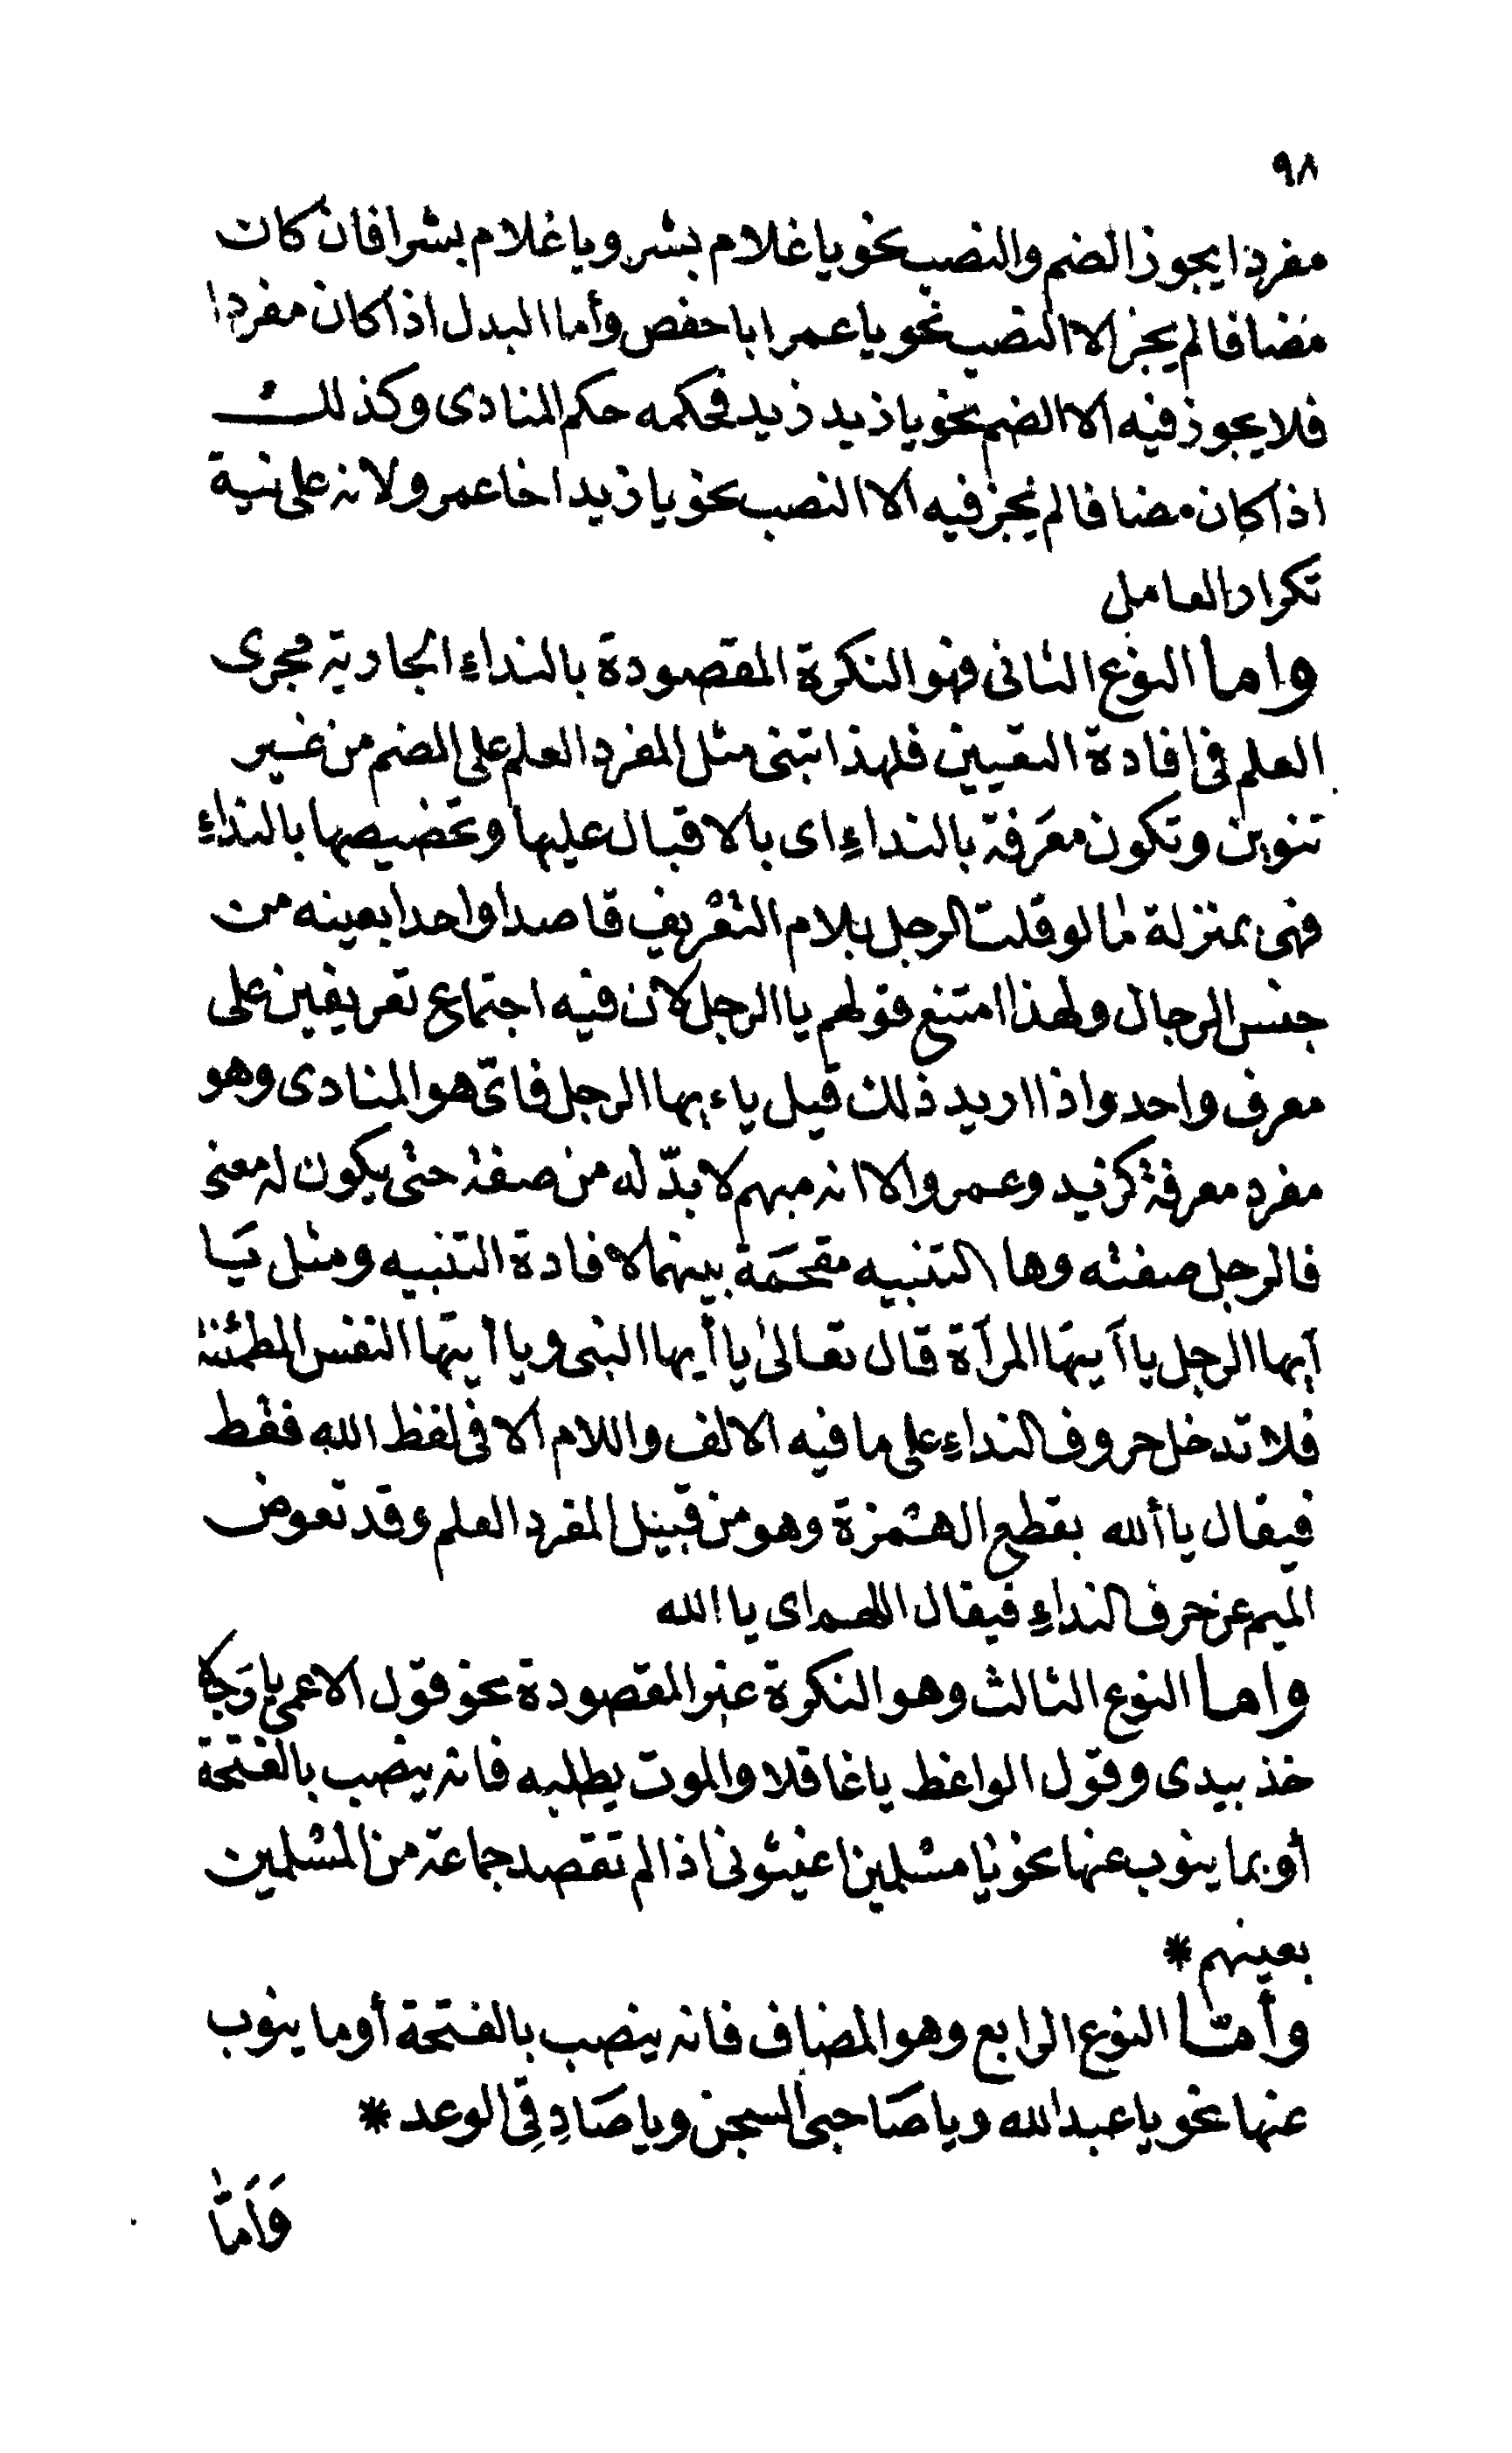 ٩٨
مفردا يجوز الضم والنصب نحو يا غلام بشر ويا غلام بشرا فان كان
مضافا لم يجز الا النصب نحو يا عمر ابا حفص وأما البدل اذا كان مفردا
فلا يجوز فيه الا الضم نحو يا زيد زيد فحكمه حكم المنادى وكذلك
اذا كان مضافا لم يجز فيه الا النصب نحو يا زيد اخا عمرو لانه على نية
تكرار العامل
واما النوع الثانى فهو النكرة المقصودة بالنداء الجارية مجرى
العلم فى افادة التعيين فلهذا تبنى مثل المفرد العلم على الضم من غير
تنوين وتكون معرفة بالنداء اى بالاقبال عليها وتخصيصها بالنداء
فهى بمنزلة ما لو قلت الرجل بلام التعريف قاصدا واحدا بعينه من
جنس الرجال ولهذا امتنع قولهم يا الرجل لان فيه اجتماع تعريفين على
معرف واحد واذا اريد ذلك قيل ياءيها الرجل فاىّ هو المنادى وهو
مفرد معرفة كزيد وعمرو الا انه مبهم لا بدّ له من صفة حتى يكون له معنى
فالرجل صفته وها التنبيه مقحمَة بينهما لافادة التنبيه ومثل يَا
أيها الرجل يا أيتها المرأة قال تعالى يا أيها النبى ويا أيتها النفس المطمئنة
فلا تدخل حروف النداء على ما فيه الالف واللام الا فى لفظ الله فقط
فيقال يا ألله بقطع الهمزة وهو من قبيل المفرد العلم وقد تعوض
الميم عن حرف النداء فيقال اللهم اى يا الله
واما النوع الثالث وهو النكرة غير المقصودة نحو قول الاعمى يا رَجلا
خذ بيدى وقول الواعظ يا غافلا والموت يطلبه فانه ينصب بالفتحة
أو بما ينوب عنها نحو يا مسلمين اغيثونى اذا لم تقصد جماعة من المسلمين
بعينهم *
وأمّا النوع الرابع وهو المضاف فانه ينصب بالفتحة أو ما ينوب
عنها نحو يا عبد الله ويا صَاحبى السجن ويا صَادِقِى الوعد *
وَأَمّا